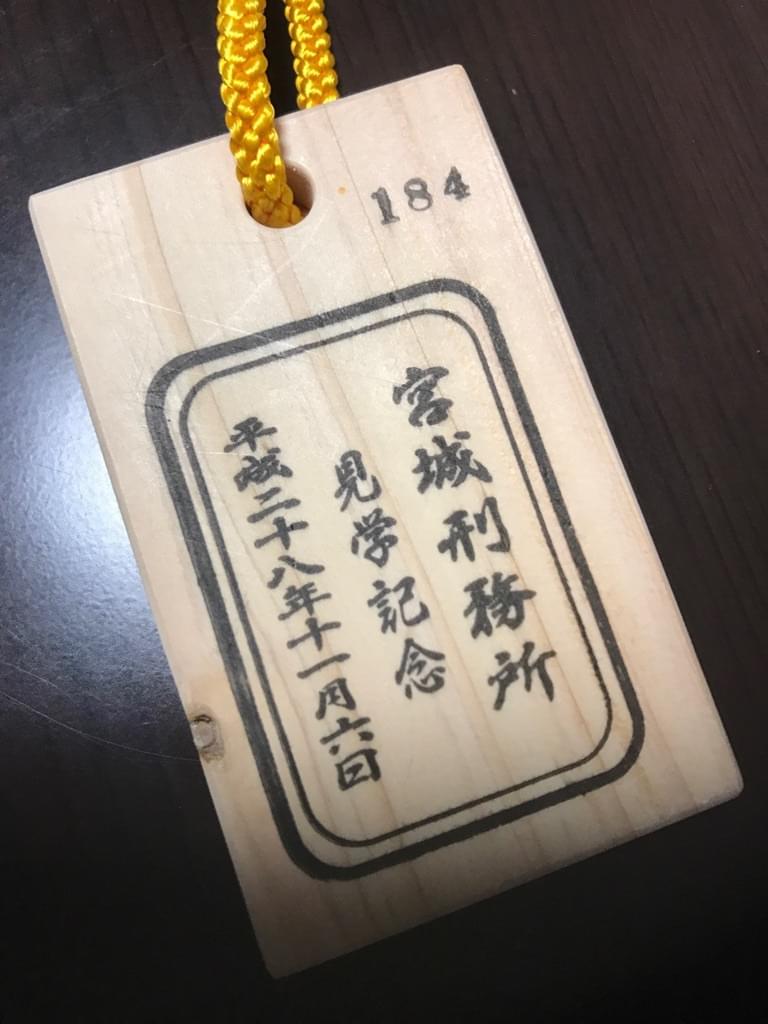 184
宮城刑務所
見学記念
平成二十八年十一月六日